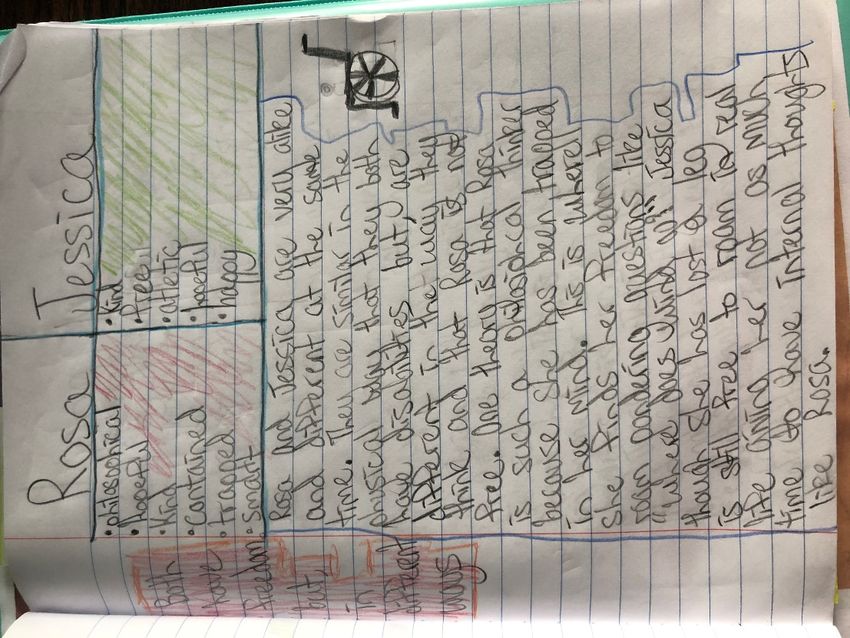 Rosa
Jessica
• philosophical
• hopeful
• Kind
• Contained
• trapped
• Smart
• Kind
• free
• atletic
• hopeful
• happy
Rosa and Jessica are very alike
and different at the same
time. They are similar in the
physical way that they both
have disabilities but, are
different in the way they
think and that Rosa is not
free. One theory is that Rosa
is such a philosphical thinker
because she has been trapped
in her mind. This is where
she finds her freedom to
roam pondering questions like
"Where does wind go". Jessica
though she has lost a leg
is still free to roam in real
life giving her not as much
time to have internal thoughts
like Rosa.
Both
have
freedom
but
in
different
ways